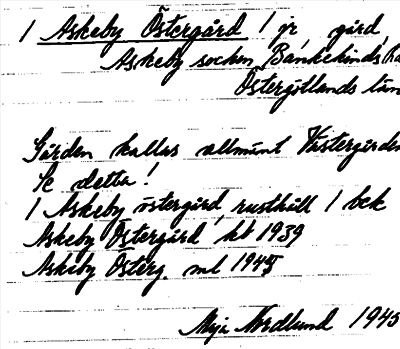 1 Askeby Östergård 1 jr gård,
Askeby socken, Bankekinds
Östergötlands län
Gården kallas allmänt Västergården
Se detta!
1 Askeby östergård, rusthåll 1 bek
Askeby Östergård kt 1939
Askeby Österg. ml 1945
Maja Nordlund 1945